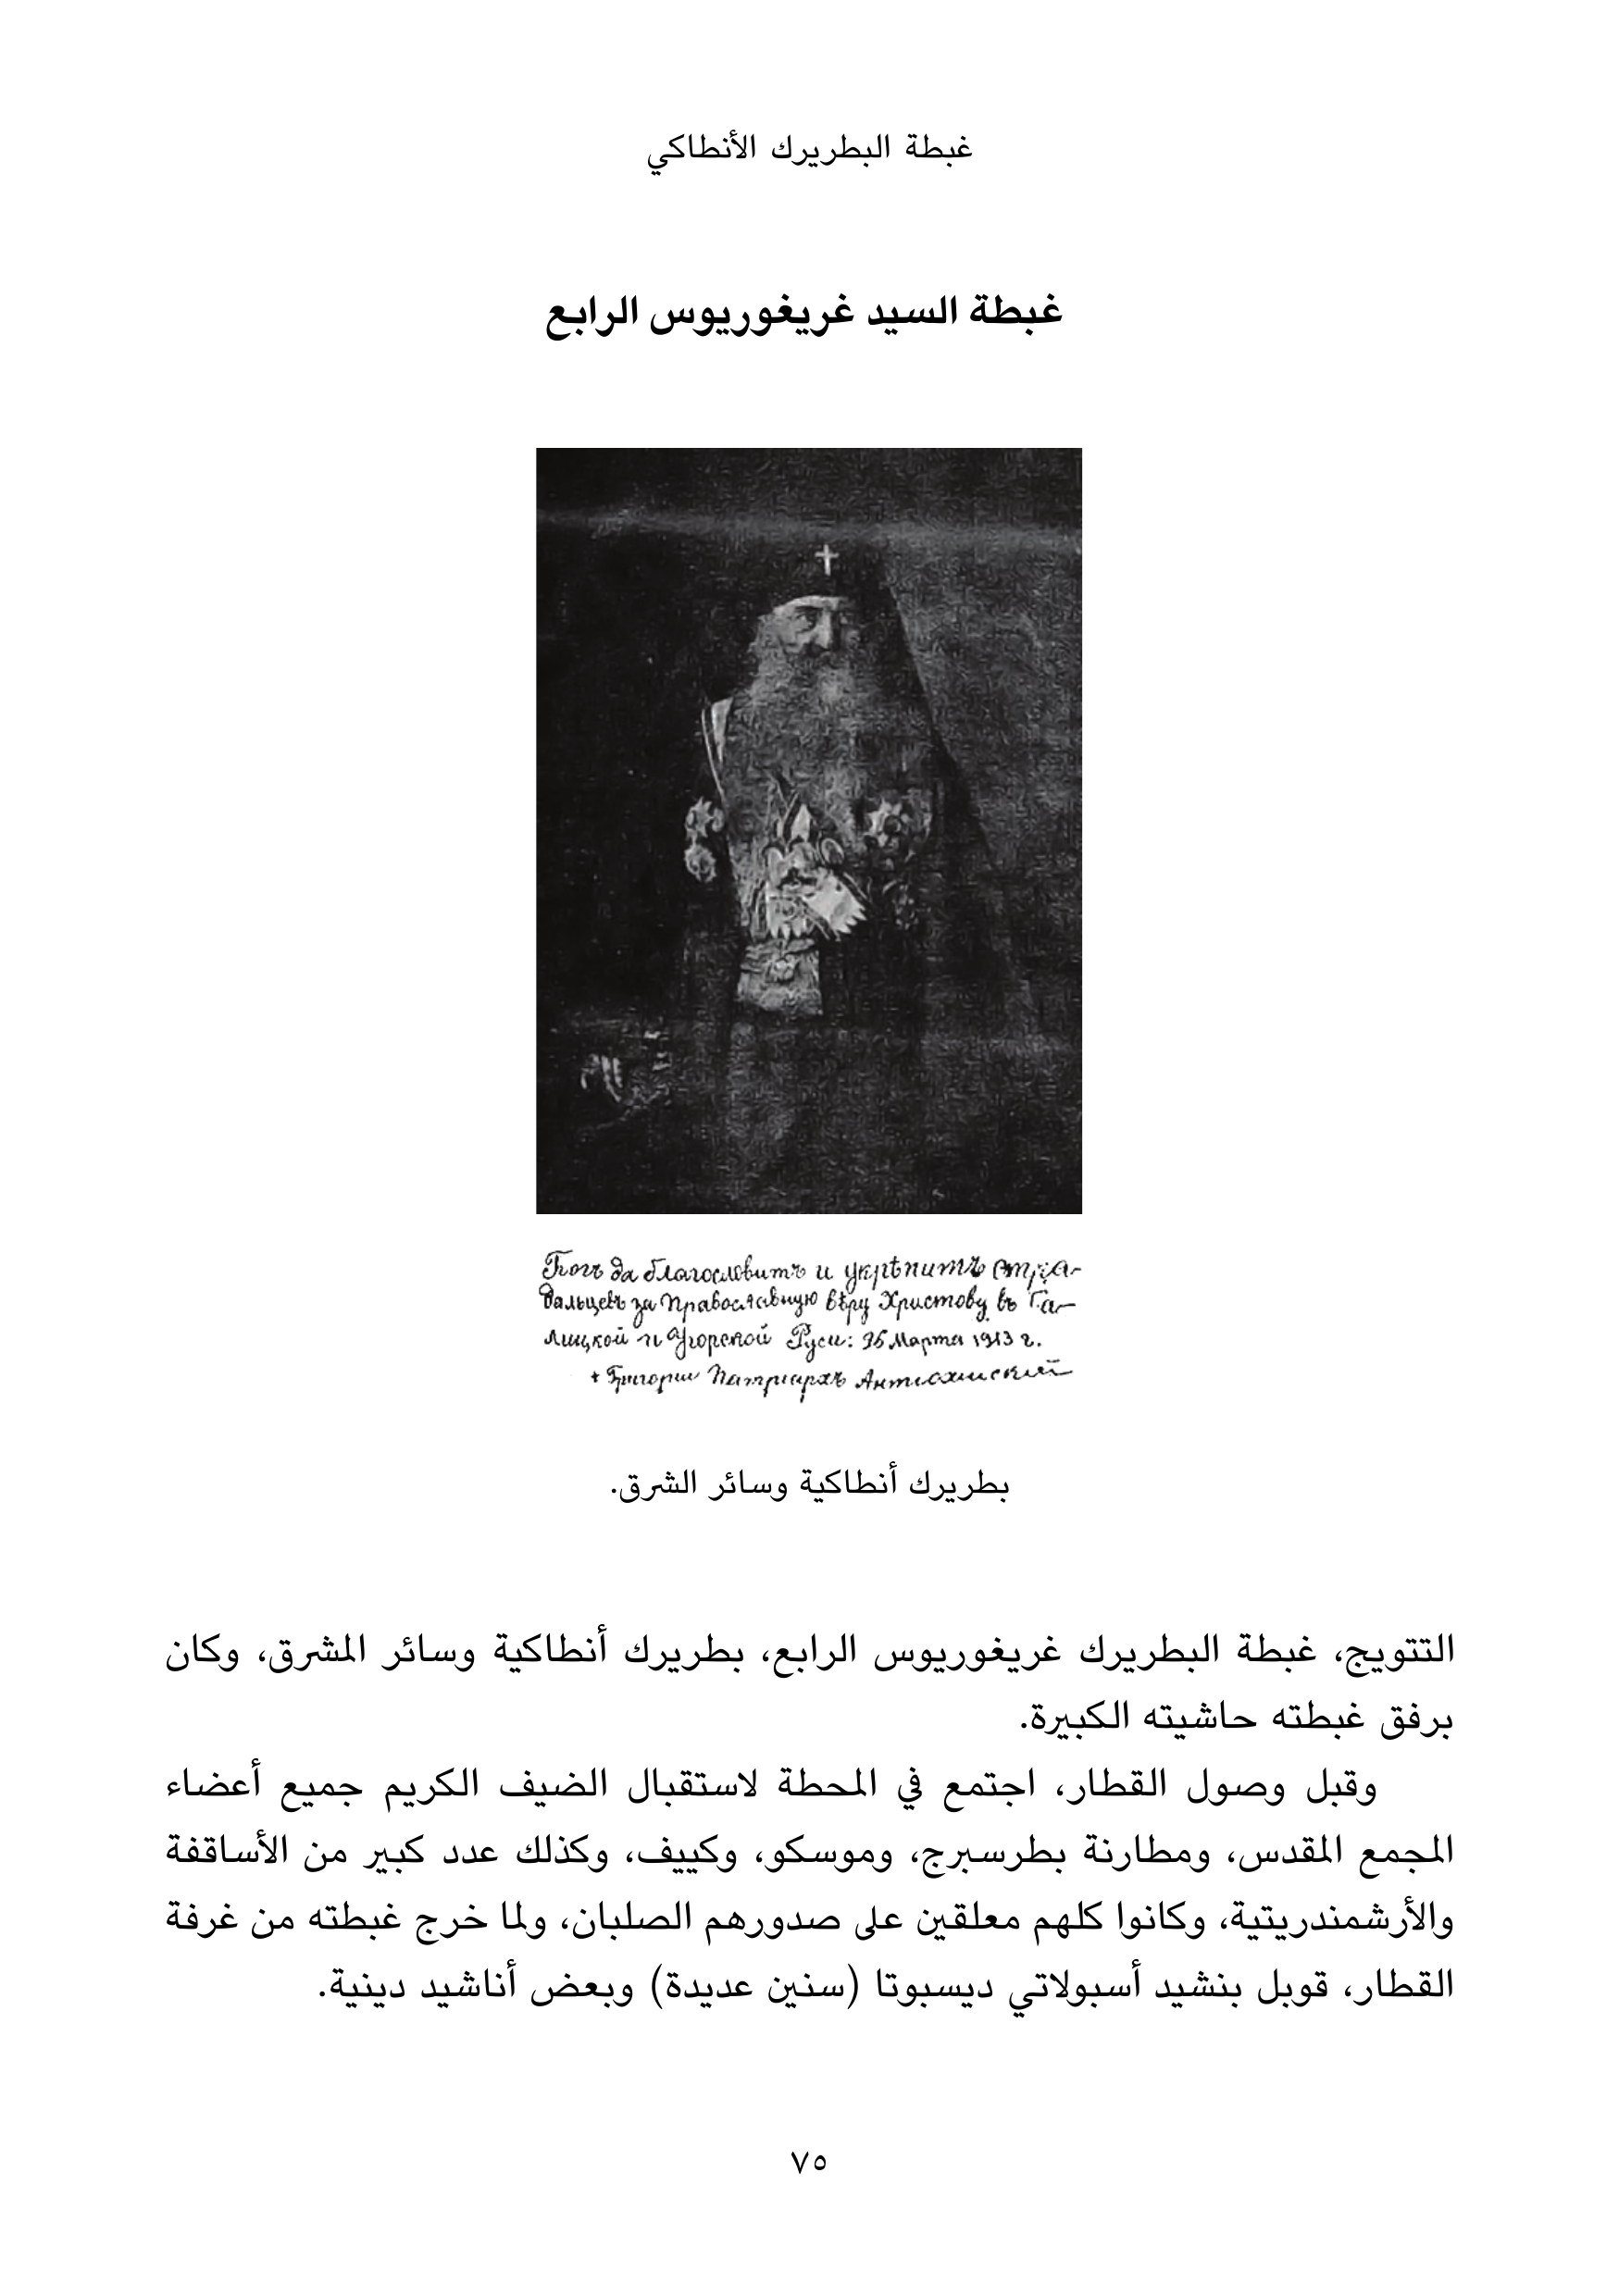 غبطة البطريرك الأنطاكي
غبطة السيد غريغوريوس الرابع
Богъ да благословитъ и укрѣпитъ стра-
дальцевъ за Православную вѣру Христову въ Га-
лицкой и Угорской Руси: Марта 1913 г.
+ Григорий Патриархъ Антиохийский
بطريرك أنطاكية وسائر الشرق.
التتويج، غبطة البطريرك غريغوريوس الرابع، بطريرك أنطاكية وسائر المشرق، وكان
برفق غبطته حاشيته الكبيرة.
وقبل وصول القطار، اجتمع في المحطة لاستقبال الضيف الكريم جميع أعضاء
المجمع المقدس، ومطارنة بطرسبرج، وموسكو، وكييف، وكذلك عدد كبير من الأساقفة
والأرشمندريتية، وكانوا كلهم معلقين على صدورهم الصلبان، ولما خرج غبطته من غرفة
القطار، قوبل بنشيد أسبولاتي ديسبوتا (سنين عديدة) وبعض أناشيد دينية.
٧٥